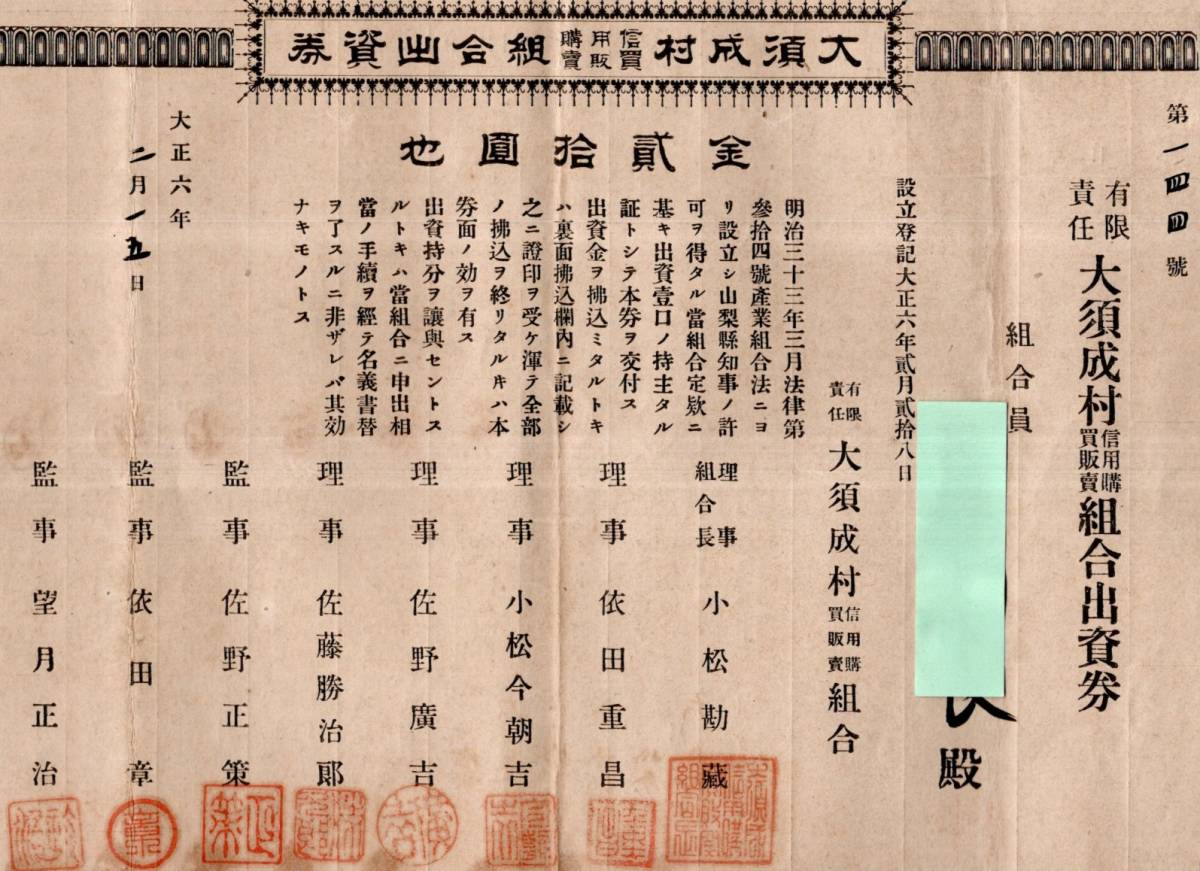 大須成村信用購買販賣組合出資券
金貳拾圓也
第一四四號
有限責任大須成村信用購買販賣組合出資券
組合員
殿
設立登記大正六年貳月貳拾八日
有限責任大須成村信用購買販賣組合
明治三十三年三月法律第
參拾四號產業組合法ニヨ
リ設立シ山梨縣知事ノ許
可ヲ得タル當組合定欵ニ
基キ出資壹口ノ持主タル
証トシテ本券ヲ交付ス
出資金ヲ拂込ミタルトキ
ハ裏面拂込欄內ニ記載シ
之ニ證印ヲ受ケ渾テ全部
ノ拂込ヲ終リタルキハ本
券面ノ効ヲ有ス
出資持分ヲ讓與セントス
ルトキハ當組合ニ申出相
當ノ手續ヲ經テ名義書替
ヲ了スルニ非ザレバ其効
ナキモノトス
大正六年
二月一五日
理事組合長 小松勘藏
理事 依田重昌
理事 小松今朝吉
理事 佐野廣吉
理事 佐藤勝治郞
監事 佐野正策
監事 依田章
監事 望月正治